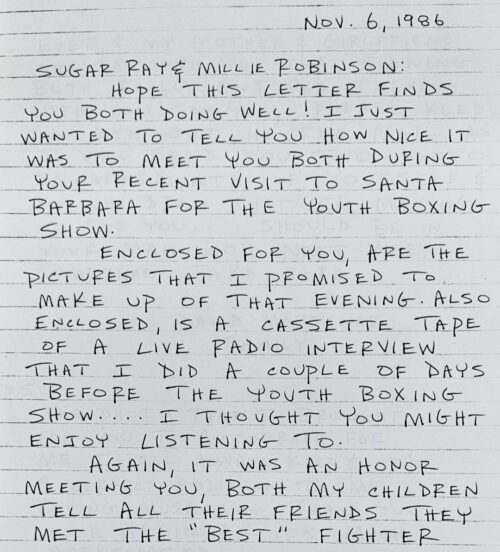 NOV. 6, 1986
SUGAR RAY & MILLIE ROBINSON:
HOPE THIS LETTER FINDS
YOU BOTH DOING WELL! I JUST
WANTED TO TELL YOU HOW NICE IT
WAS TO MEET YOU BOTH DURING
YOUR RECENT VISIT TO SANTA
BARBARA FOR THE YOUTH BOXING
SHOW.
ENCLOSED FOR YOU, ARE THE
PICTURES THAT I PROMISED TO
MAKE UP OF THAT EVENING. ALSO
ENCLOSED, IS A CASSETTE TAPE
OF A LIVE RADIO INTERVIEW
THAT I DID A COUPLE OF DAYS
BEFORE THE YOUTH BOXING
SHOW.... I THOUGHT YOU MIGHT
ENJOY LISTENING TO.
AGAIN, IT WAS AN HONOR
MEETING YOU, BOTH MY CHILDREN
TELL ALL THEIR FRIENDS THEY
MET THE "BEST" FIGHTER